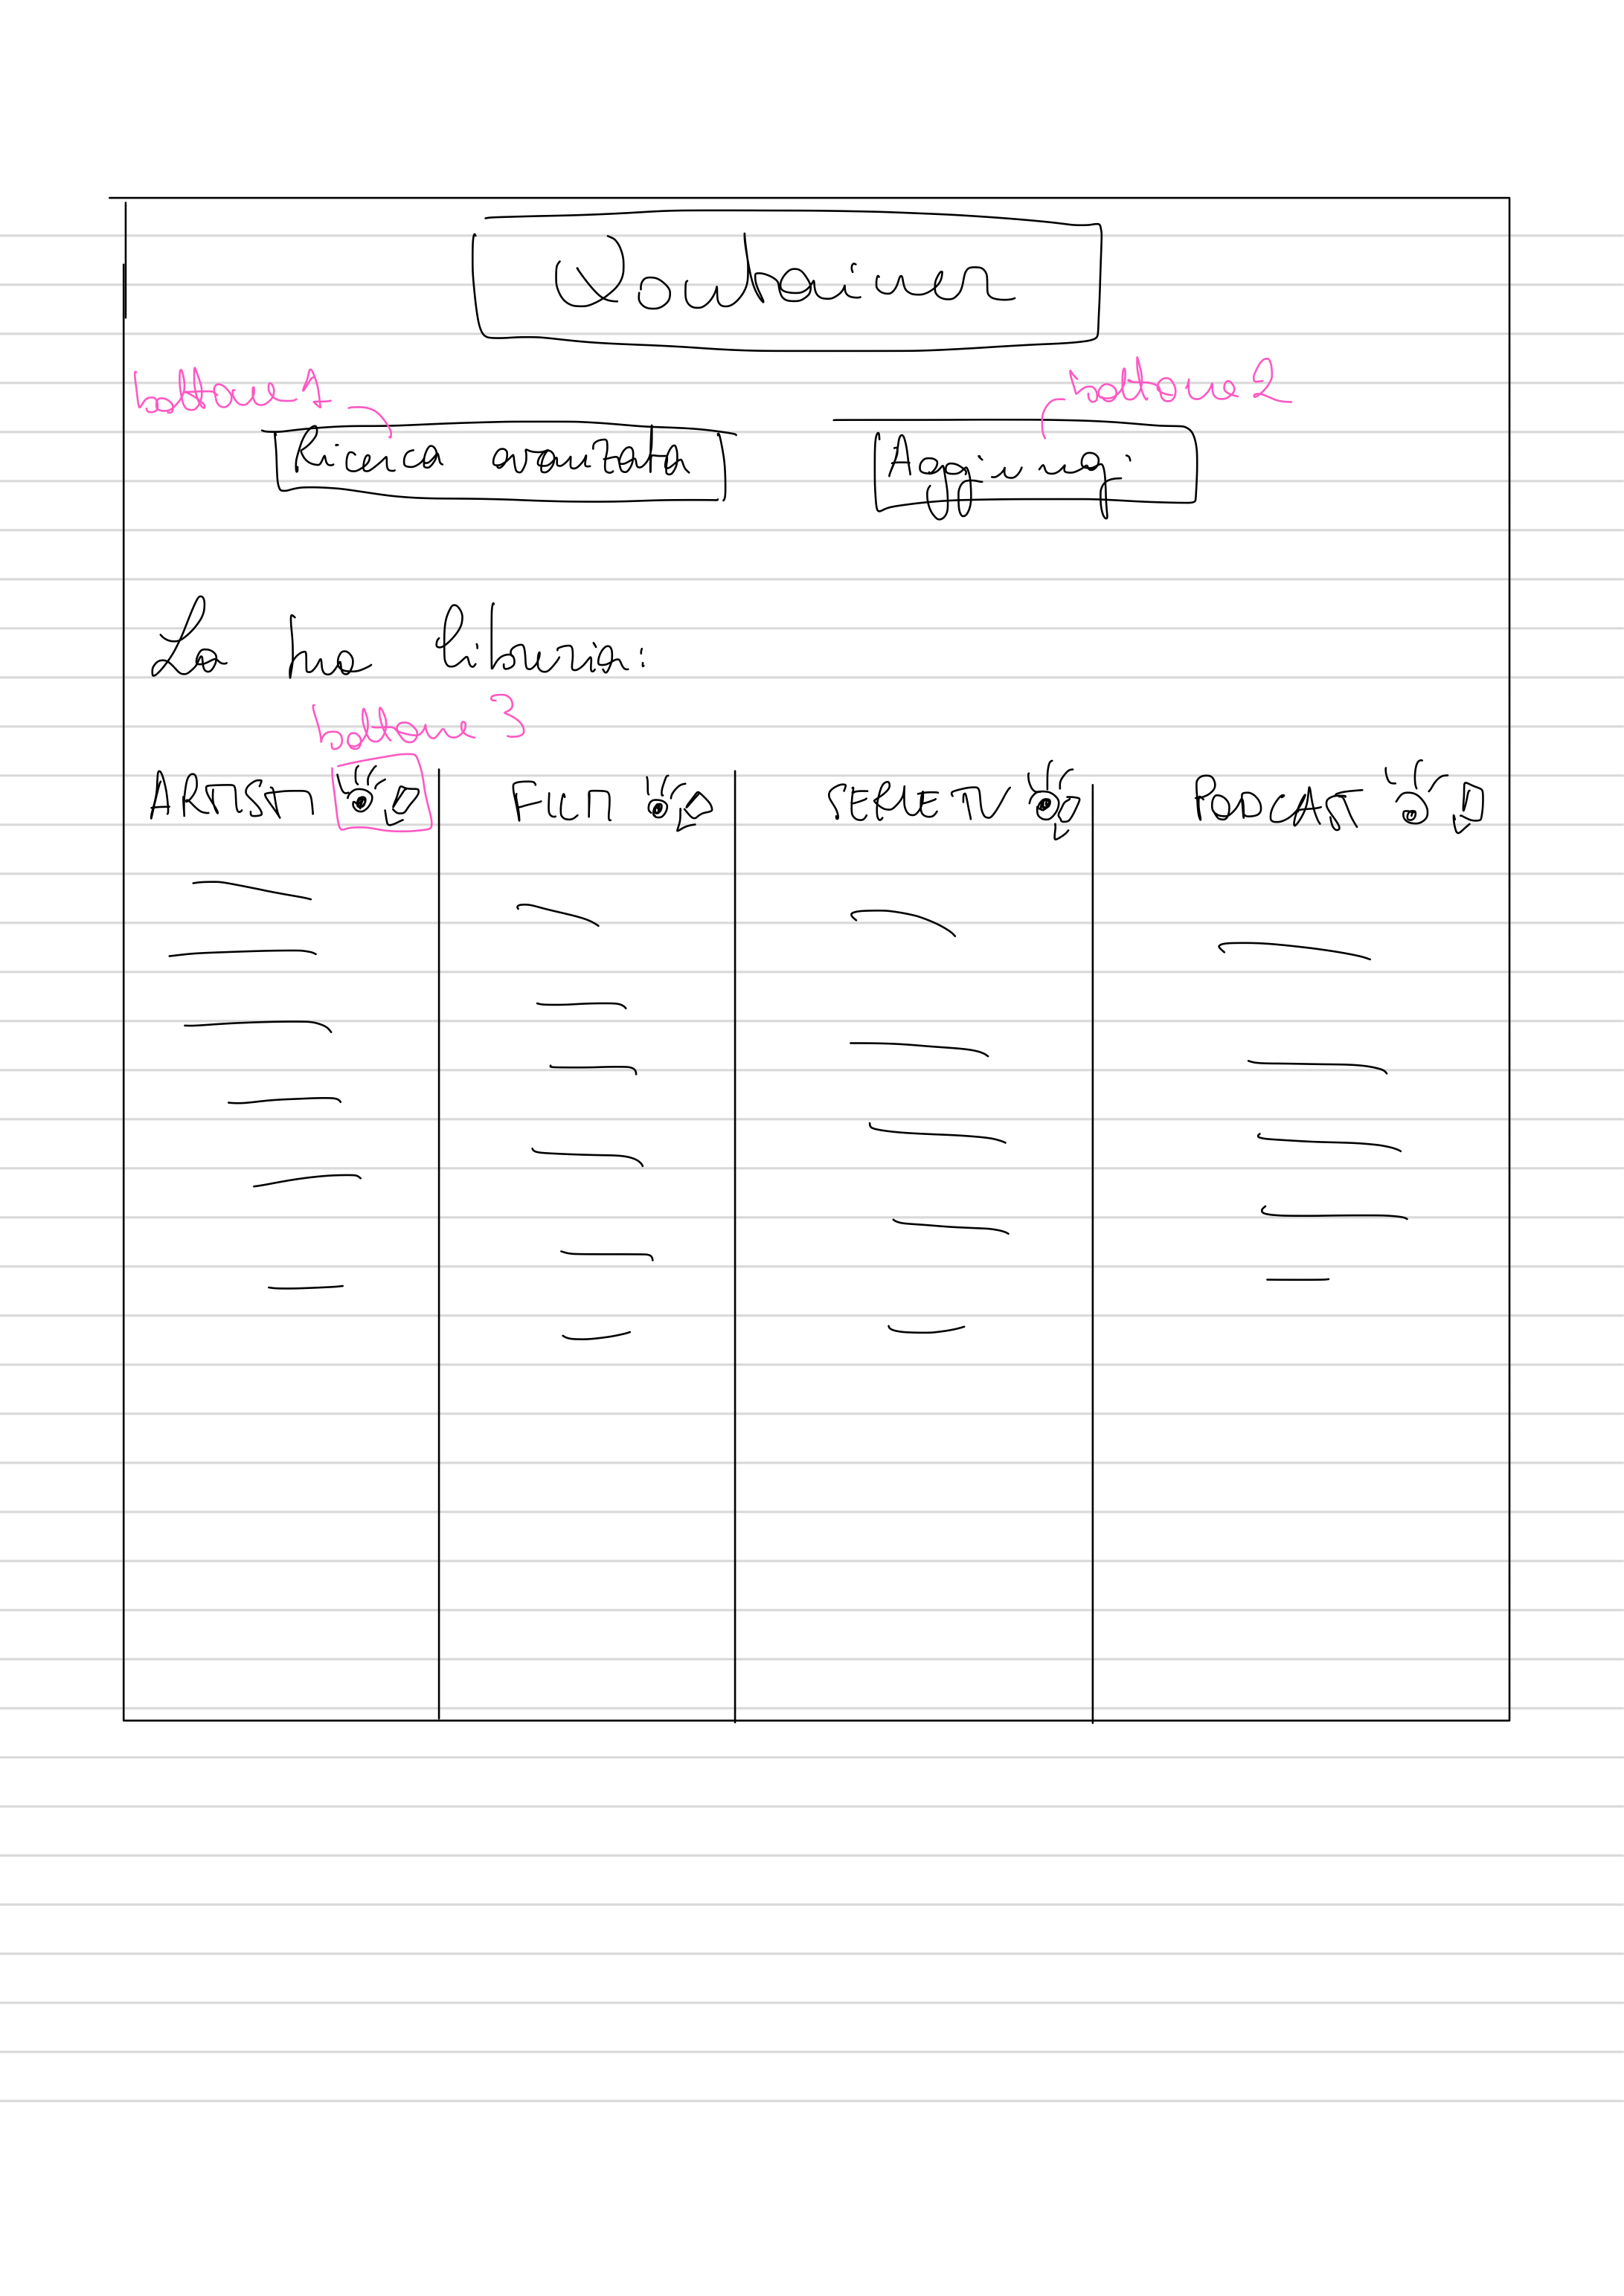 bottone 1
bottone 2
Ricerca avanzata
Aggiungi
La tua libreria:
bottone 3
ARTISTI
FILM
SERIE TV
PODCAST